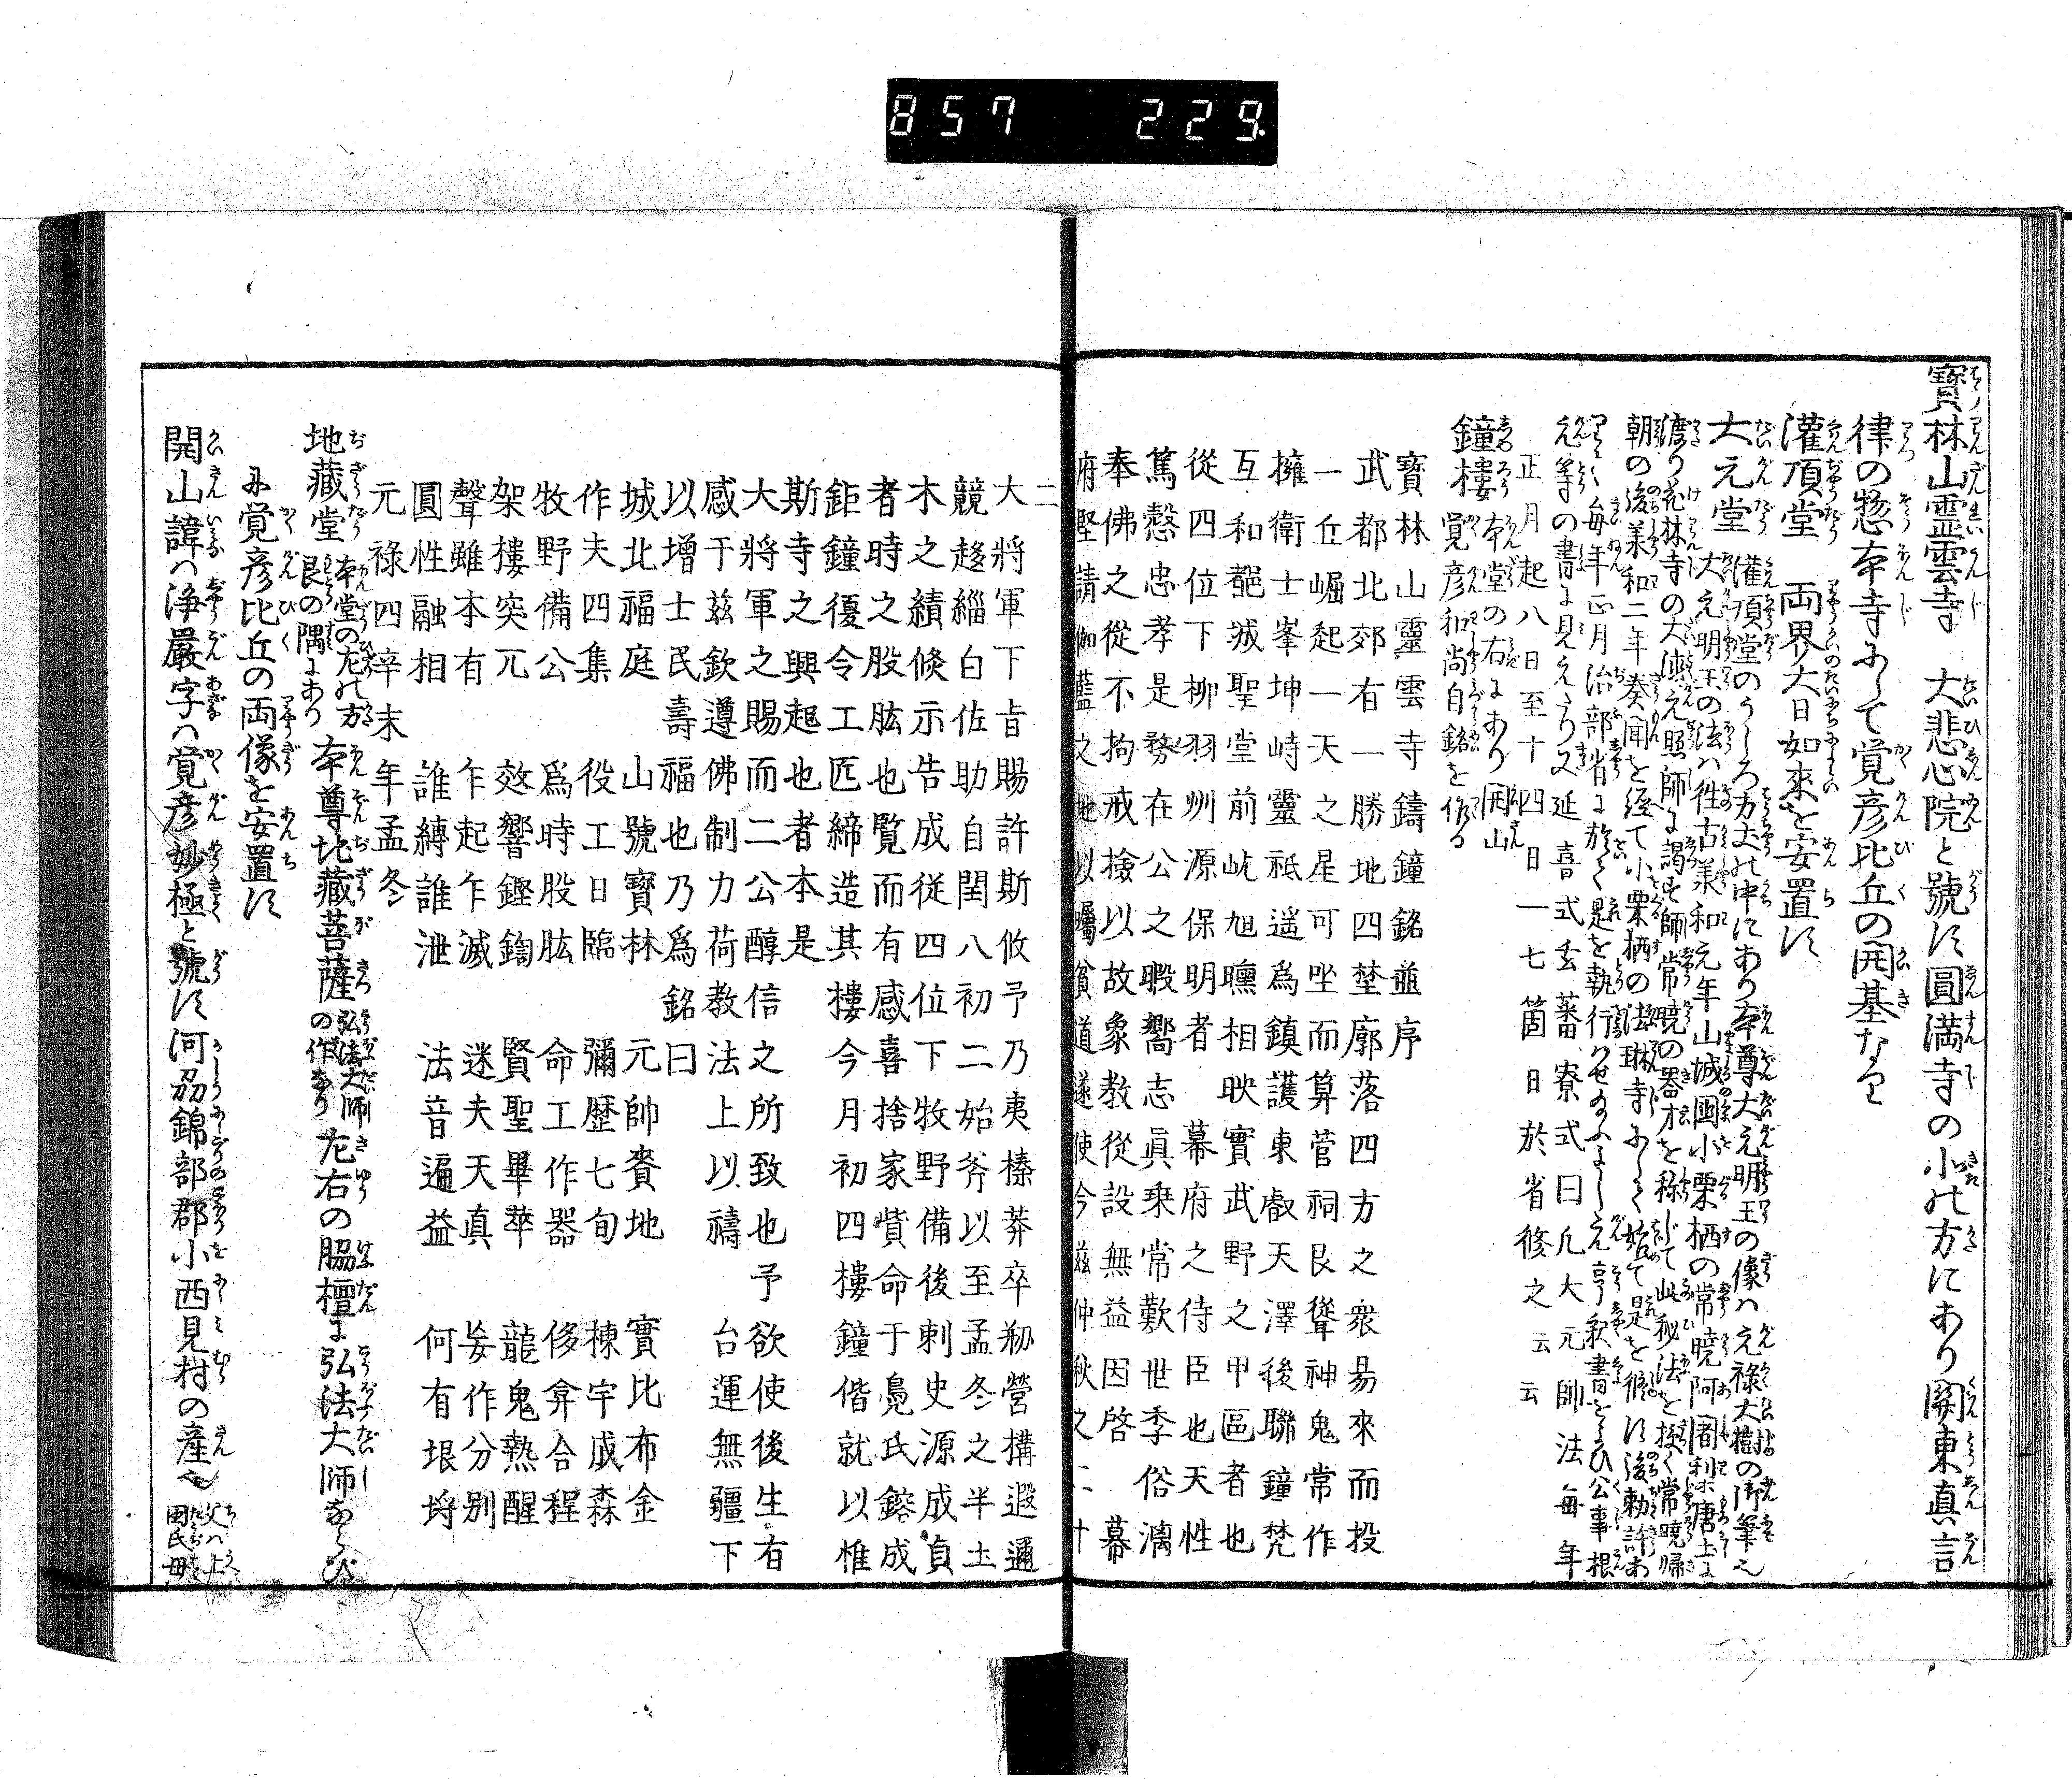 857 229
寶林山霊雲寺 大悲心院と號す圓満寺の北の方にあり関東真言
律の惣本寺にして覚彦比丘の開基なり
灌頂堂 両界大日如來を安置す
大元堂 灌頂堂のうしろ方丈の中にあり本尊大元明王の像は元禄大樹の御筆也
大元明王の法は往古承和元年山城國小栗栖の常曉阿闍梨入唐上に
渡り花林寺の大德元照師に謁す師常曉の器才を称して此秘法を授く常曉帰
朝の後承和二年奏聞を経て小栗栖の法琳寺にして始て是を修す後勅許あ
りて毎年正月治部省に於て是を執行せ給ふよし元亨釈書をよひ公事根
元等の書に見えたり又延喜式玄蕃寮式曰凡大元帥法毎年
正月起八日至十四日一七箇日於省修之云云
鐘樓 本堂の右にあり開山
覚彦和尚自銘を作る
寶林山靈雲寺鑄鐘銘並序
武都北郊有一勝地四埜廓落四方之衆易來而投
一丘崛起一天之星可坐而算菅祠艮聳神鬼常作
擁衛士峯坤峙靈祗遥爲鎮護東叡天澤後聯鐘梵
互和䰟城聖堂前屹旭曛相映實武野之甲區者也
從四位下柳羽州源保明者 幕府之侍臣也天性
篤慤忠孝是務在公之暇嚮志眞乗常歎世季俗漓
奉佛之從不拘戒撿以故象教從設無益因啓 幕
府堅請伽藍之地以囑貧道遂使今茲仲秋之二十
二
大將軍下旨賜許斯攸予乃夷榛莽卒剏營構遐邇
競趍緇白佐助自閏八初二始斧以至孟冬之半土
木之績倐示告成從四位下牧野備後刺史源成貞
者時之股肱也覧而有感喜捨家貲命于鳧氏鎔成
鉅鐘復令工匹締造其樓今月初四樓鐘偕就以惟
斯寺之興起也者本是
大將軍之賜而二公醇信之所致也予欲使後生有
感于茲欽遵佛制力荷教法上以禱 台運無疆下
以增士民壽福也乃爲銘曰
城北福庭 山號寶林 元帥賚地 實比布金
作夫四集 役工日臨 彌歴七旬 棟宇成森
牧野備公 爲時股肱 命工作器 侈弇合程
架樓突兀 效響鏗鍧 賢聖畢萃 龍鬼熱醒
聲雖本有 乍起乍滅 迷夫天真 妄作分别
圓性融相 誰縛誰泄 法音遍益 何有垠埒
元禄四辛未年孟冬
地藏堂 本堂の左の方
艮の隅にあり 本尊地藏菩薩 弘法大師
の作なり 左右の脇檀に弘法大師ならび
に覚彦比丘の両像を安置す
開山諱は浄嚴字は覚彦妙極と號す河刕錦部郡小西見村の産也 父は上
田氏母